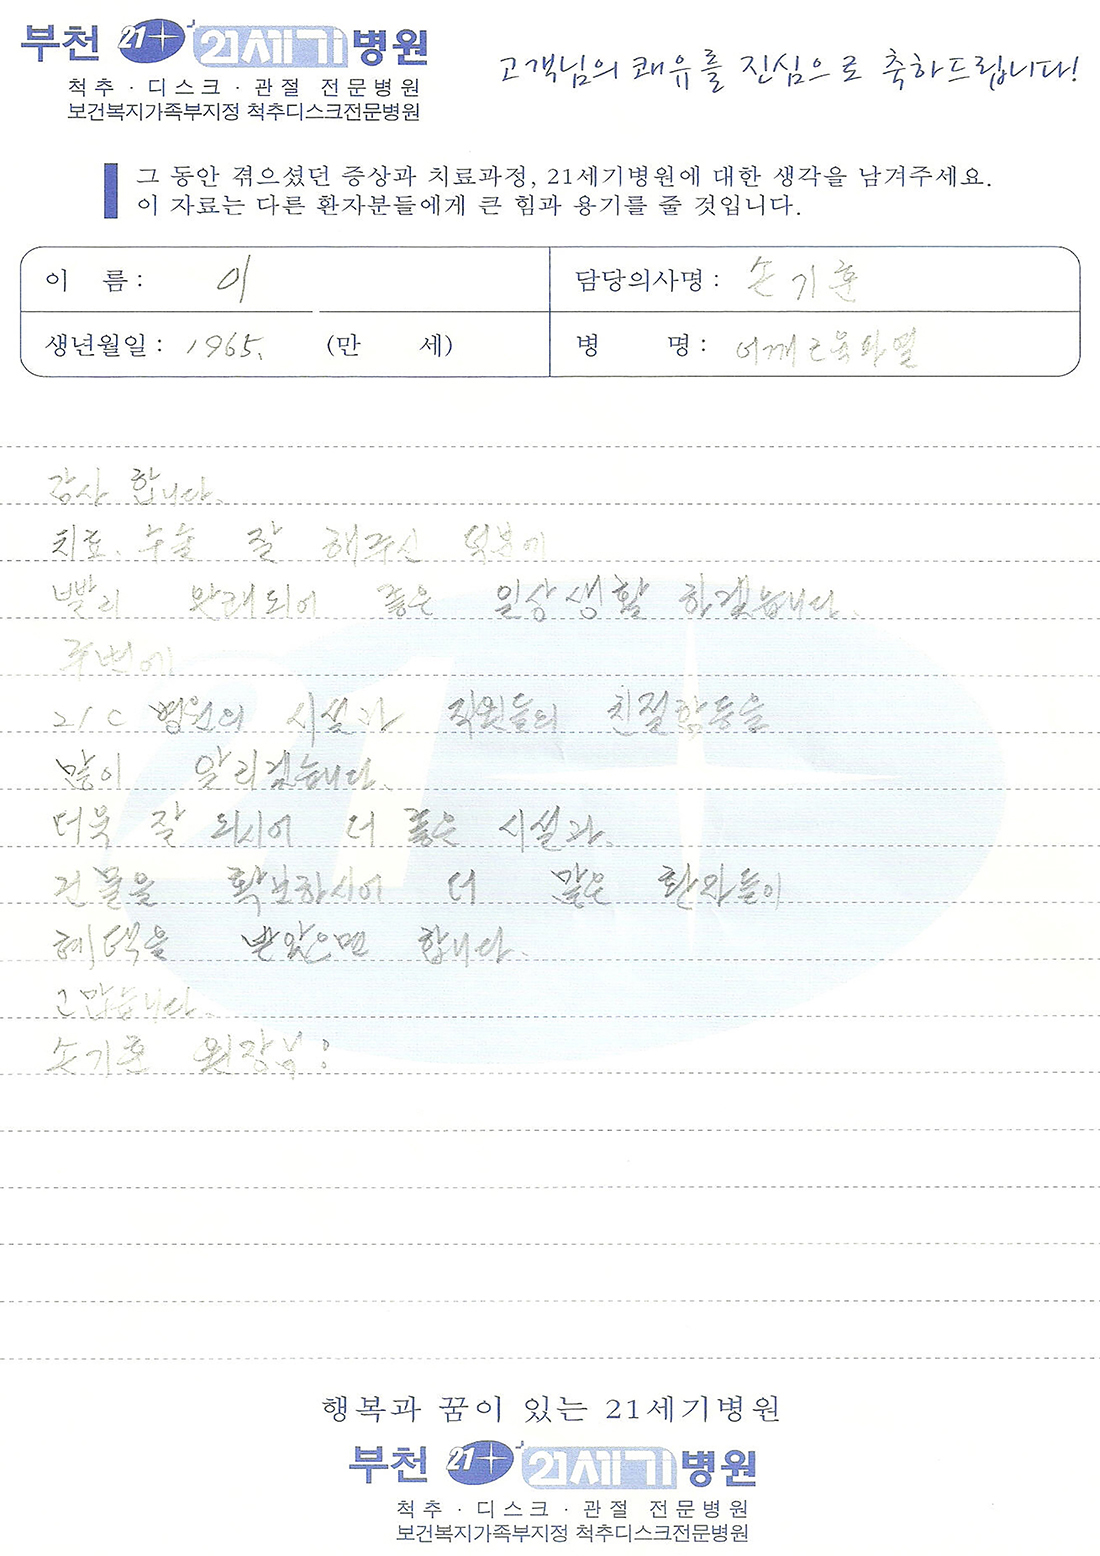 부천 21 21세기병원
척추 · 디스크 · 관절 전문병원
보건복지가족부지정 척추디스크전문병원
고객님의 쾌유를 진심으로 축하드립니다!
그 동안 겪으셨던 증상과 치료과정, 21세기병원에 대한 생각을 남겨주세요.
이 자료는 다른 환자분들에게 큰 힘과 용기를 줄 것입니다.
이 름 : 이
담당의사명 : 손기훈
생년월일 : 1965. (만 세)
병 명 : 어깨근육파열
감사 합니다.
치료, 수술 잘 해주신 덕분에
빨리 완쾌되어 좋은 일상생활 하겠습니다.
주변에
21C 병원의 시설과 직원들의 친절함등을
많이 알리겠습니다.
더욱 잘 되시어 더 좋은 시설과,
건물을 확보하시어 더 많은 환자들이
혜택을 받았으면 합니다.
고맙습니다.
손기훈 원장님:
21
행복과 꿈이 있는 21세기병원
부천 21 21세기병원
척추 · 디스크 · 관절 전문병원
보건복지가족부지정 척추디스크전문병원